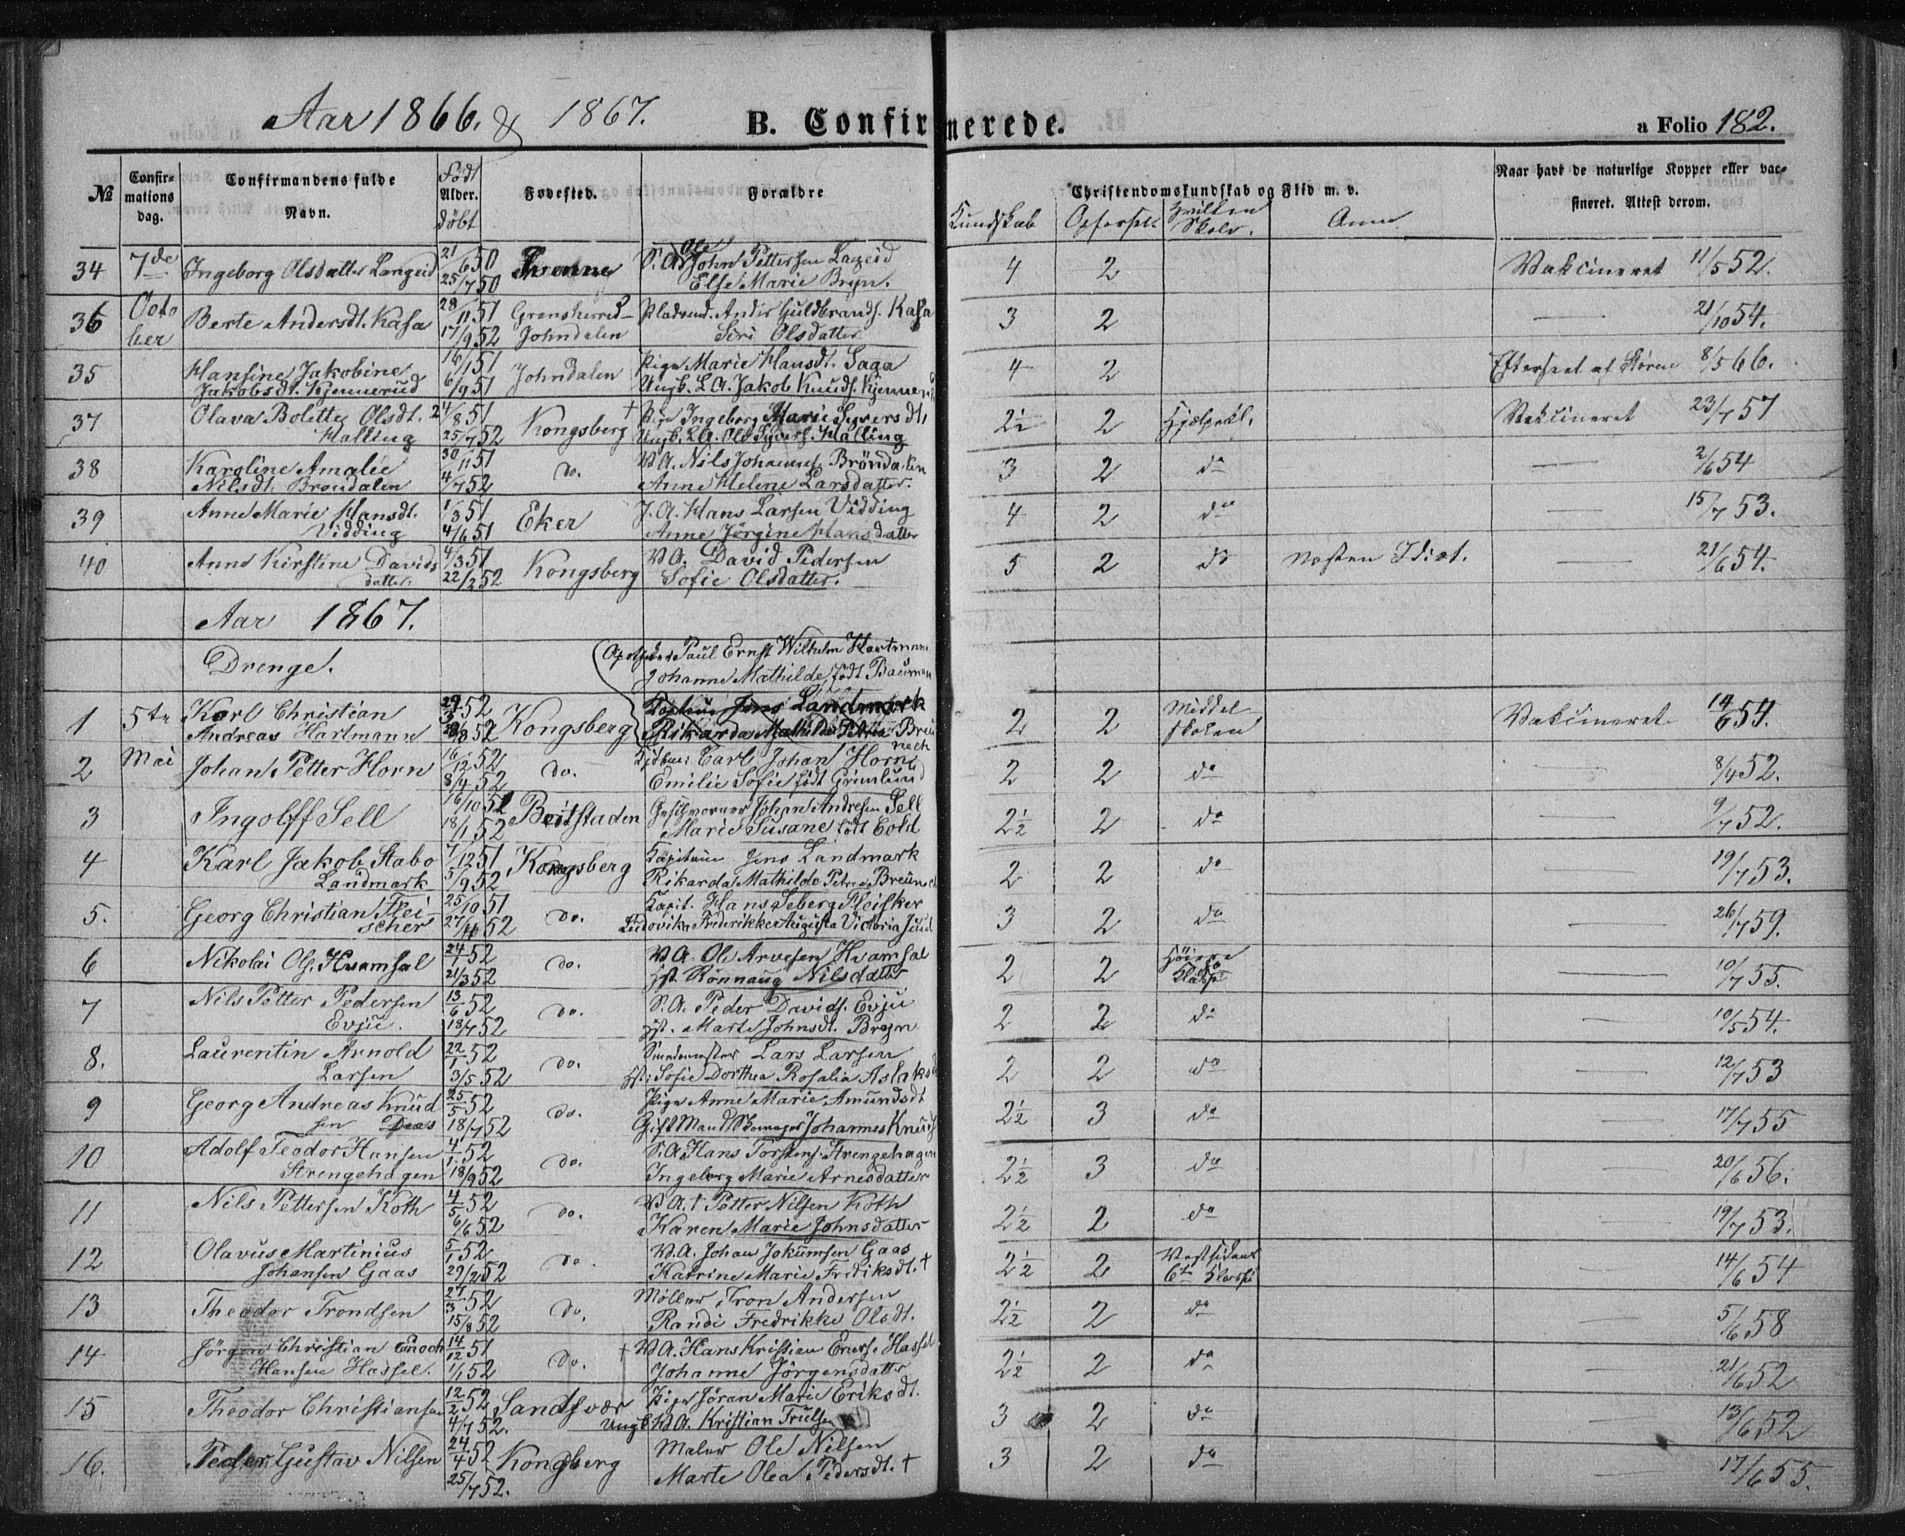 Aar 1866. & 1867. B. Confirmerede. a Folio 182.
№ Confirmations dag. Confirmandens fulde Navn. Födt Alder. döbt Fødested. Forældre Christendomskundskab og Flid m. v. Naar havt de naturlige Kopper eller vaccineret. Attest derom.
Kundskab Opförsel Hvilken Skole. Anm.
34 7de Ingeborg Olsdatter Langeid 21/6 50 S. A. Ole John Pettersen Langeid 4 2 Vakcineret 11/5 52.
25/7 50 Else Marie Bryn.
36 October Berte Andersdt. Kasa 28/11 51 Gransherred Pladsmd. Anders Guldbrands. Kasa 3 2 — 21/10 54.
17/9 52 Johndalen Siri Olsdatter
35 Hansine Jakobine 16/1 51 Johndalen Pige Marie Hansdt. Saga 4 2 Efterseet af Støren 8/5 66.
Jakobsdt. Kjennerud 6/9 51 Ungk. L. A. Jakob Knuds. Kjennerud
37 Olava Bolette Olsdt. 24/8 51 Kongsberg † Pige Ingeborg Marie Syversdt. 2½ 2 Hjælpeskl. Vakcineret 23/7 57
Halling 25/7 52 Ungk. L. A. Ole Syvers. Halling
38 Karoline Amalie 30/11 51 do. V. A. Nils Johannes. Bröndalen 3 2 do — 2/6 54
Nilsdt. Brøndalen 4/7 52 Anne Helene Larsdatter.
39 Anne Marie Hansdt. 1/3 51 Eker J. A. Hans Larsen Vidding 4 2 do — 15/7 53.
Vidding 4/6 51 Anne Jörgine Hansdatter
40 Anne Kirstine Davids 4/3 51 Kongsberg V. A. David Pedersen 5 2 do Næsten Idiot. — 21/6 54.
datter. 22/2 52 Sofie Olsdatter.
Aar 1867.
Drenge. Apotheker Paul Ernst Wilhelm Hartmann
Johanne Mathilde födt Bauman
1 5te Karl Christian 52 Kongsberg Kaptein Jens Landmark 2 2 Middelskolen Vakcineret 19/6 54.
Andreas Hartmann 52 Rikarda Mathilde Petrea Breünech
2 Mai Johan Petter Horn 16/12 52 do. Carl Johan Horn 2 2 do — 8/4 52.
8/4 52 Emilie Sofie födt Grimlund
3 Ingolff Sell 16/10 51 Beitstaden Geschworner Johan Andresen Sell 2½ 2 do — 9/7 52.
18/1 52 Marie Susane födt Cold
4 Karl Jakob Stabo 7/12 51 Kongsberg Kaptein Jens Landmark 2 2 do 19/7 53.
Landmark 5/9 52 Rikarda Mathilde Petrea Breünech
5. Georg Christian Flei 25/10 51 do. Kapit. Hans Seberg Fleisker 3 2 do 26/7 59.
scher 52 Ludovika Frederikke Augusta Victoria Juul
6 Nikolai Ols. Hvamsal 24/1 52 do. V. A. Ole Arvesen Hvamsal 2 2 Höiere Klasse 10/7 55.
21/3 52 Hst. Rönnaug Nilsdatter
7 Nils Petter Pedersen 13/6 52 do. S. A. Peder Davids. Evju 2 2 do 10/5 54.
Evju. 18/7 52 Hst. Marte Johnsdt. Bryn
8. Laurentin Arnold 22/1 52 do. Lars Larsen 2 2 do 12/7 53
Larsen 3/5 52 Hst: Sofie Dorthea Rosalia Aslaksd
9 Georg Andreas Knud 25/5 52 do. Pige Anne Marie Amundsdt 2½ 3 do — 17/7 55
sen 18/7 52 Gift Mand Skomager Johannes Knuds
10 Adolf Teodor Hansen 4/1 52 do. S. A. Hans Torstens. Strengehagen 2½ 3 do — 20/6 56.
Strengehagen 18/9 52 Ingeborg Marie Arnesdatter
11 Nils Pettersen Koth 4/5 52 do. V. A. † Petter Nilsen Koth 2½ 2 do — 19/7 53.
6/6 52 Karen Marie Johnsdatter
12 Olavus Martinius 5/1 52 do. V. A. Johan Jokumsen Gaas 2½ 2 Vestsidens 6te Klasse — 14/6 54
Johansen Gaas 29/2 52 Katrine Marie Fredriksdt. †
13 Theodor Trondsen 27/3 52 do. Möller Tron Andersen 2½ 2 do — 5/6 58
15/8 52 Randi Fredrikke Olsdt.
14 Jörgen Christian Enoch 14/12 51 do. † V. A. Hans Kristian Hassel 2½ 2 do — 21/6 52
Hansen Hassel. 1/1 52 Johanne Jörgensdatter
15 Theodor Christiansen 12/2 52 Sandsvær Pige Jöran Marie Eriksdt. 3 2 do — 13/6 52
4/7 52. Ungk. V. A. Kristian Trulsen
16. Peder Gustav Nilsen 24/4 52 Kongsberg Maler Ole Nilsen 3 2 do — 17/6 55.
25/7 52. Marte Olea Pedersdt. †